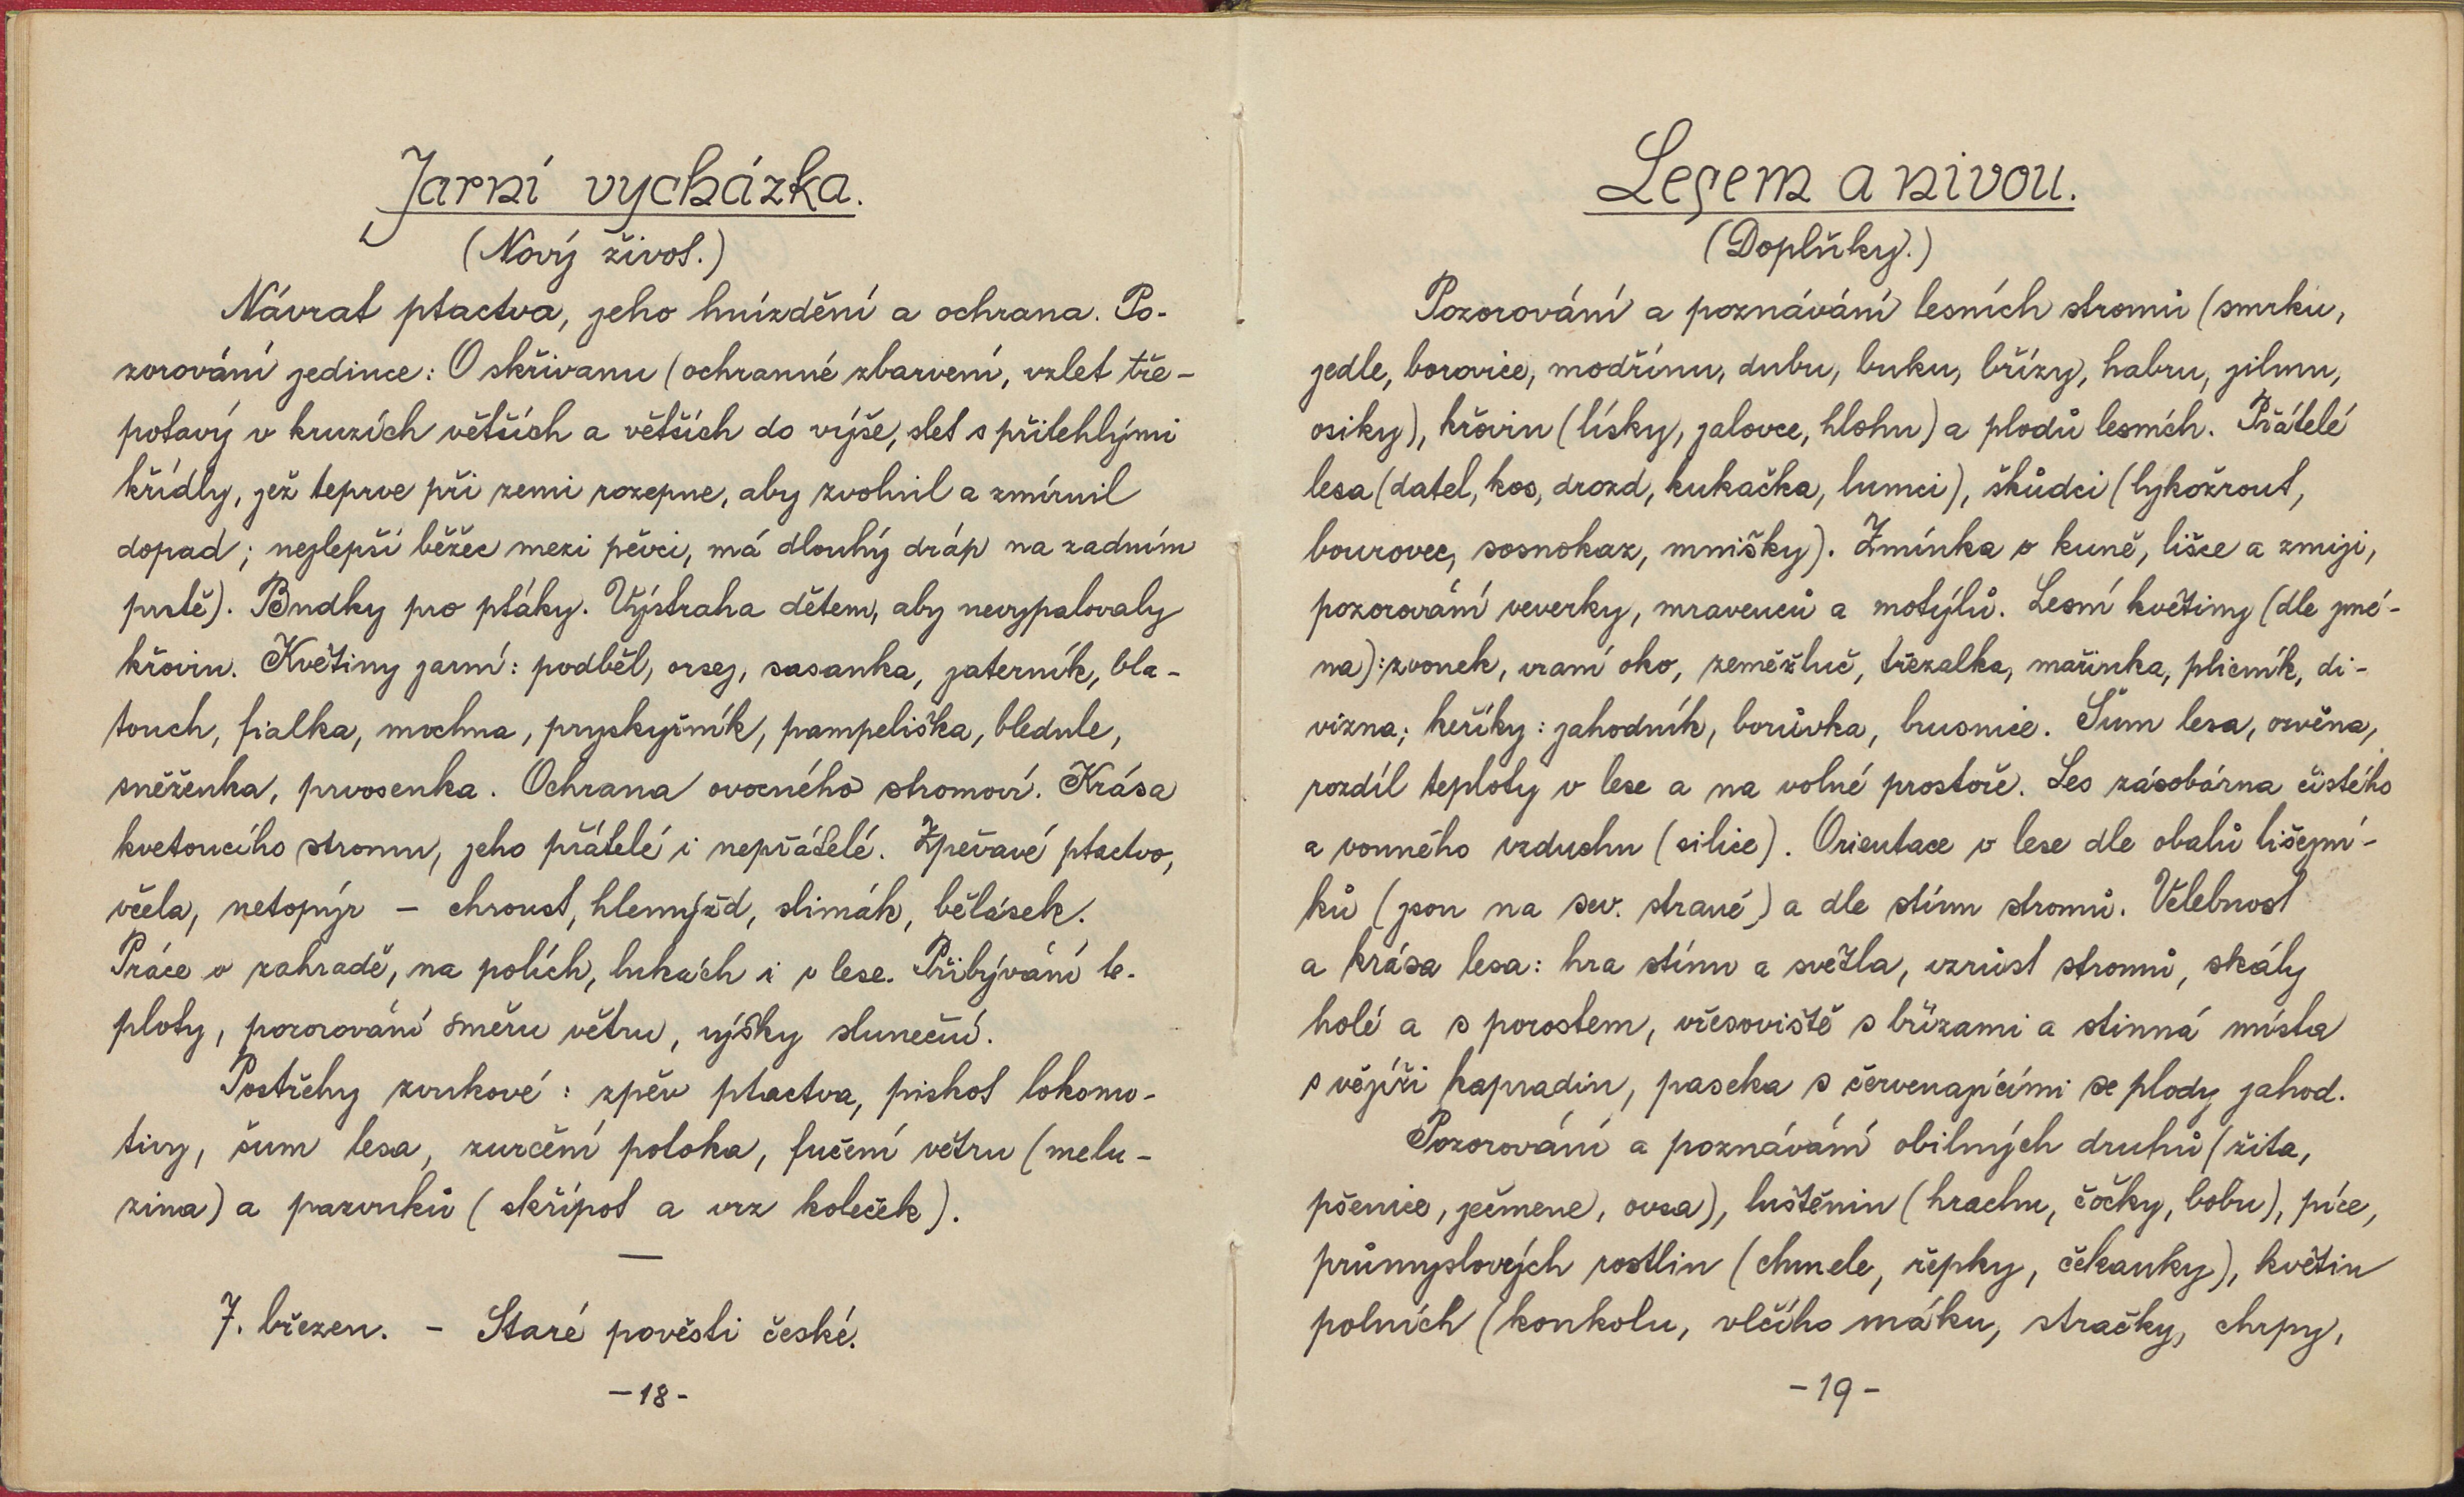 Jarní vycházka.
(Nový život.)
Návrat ptactva, jeho hnízdění a ochrana. Po-
zorování jedince: O skřivanu (ochranné zbarvení, vzlet tře-
potavý v kruzích větších a větších do výše, slet s přilehlými
křídly, jež teprve při zemi rozepne, aby zvolnil a zmírnil
dopad; nejlepší běžec mezi pěvci, má dlouhý dráp na zadním
prstě). Budky pro ptáky. Výstraha dětem, aby nevypalovaly
křovin. Květiny jarní: podběl, orsej, sasanka, jaterník, bla-
touch, fialka, mochna, pryskyřník, pampeliška, bledule,
sněženka, prvosenka. Ochrana ovocného stromoví. Krása
kvetoucího stromu, jeho přátelé i nepřátelé. Zpěvavé ptactvo,
včela, netopýr – chroust, hlemýžď, slimák, bělásek.
Práce v zahradě, na polích, lukách i v lese. Přibývání te-
ploty, pozorování směru větru, výšky sluneční.
Postřehy zvukové: zpěv ptactva, piskot lokomo-
tivy, šum lesa, zurčění potoka, fučení větru (melu-
zina) a pazvuků (skřípot a vrz koleček).
—
7. březen. – Staré pověsti české.
–18–
Lesem a nivou.
(Doplňky.)
Pozorování a poznávání lesních stromů (smrku,
jedle, borovice, modřínu, dubu, buku, břízy, habru, jilmu,
osiky), křovin (lísky, jalovce, hlohu) a plodů lesních. Přátelé
lesa (datel, kos, drozd, kukačka, lumci), škůdci (lykožrout,
bourovec, sosnokaz, mnišky). Zmínka o kuně, lišce a zmiji,
pozorování veverky, mravenců a motýlů. Lesní květiny (dle jmé-
na): zvonek, vraní oko, zeměžluč, třezalka, mařinka, plicník, di-
vizna; keříky: jahodník, borůvka, brusnice. Šum lesa, ozvěna,
rozdíl teploty v lese a na volné prostoře. Les zásobárna čistého
a vonného vzduchu (silice). Orientace v lese dle obalů lišejní-
ků (jsou na sev. straně) a dle stínu stromů. Velebnost
a krása lesa: hra stínu a světla, vzrůst stromů, skály
holé a s porostem, vřesoviště s břízami a stinná místa
s vějíři kapradin, paseka s červenajícími se plody jahod.
Pozorování a poznávání obilných druhů (žita,
pšenice, ječmene, ovsa), luštěnin (hrachu, čočky, bobu), píce,
průmyslových rostlin (chmele, řepky, čekanky), květin
polních (koukolu, vlčího máku, stračky, chrpy,
–19–